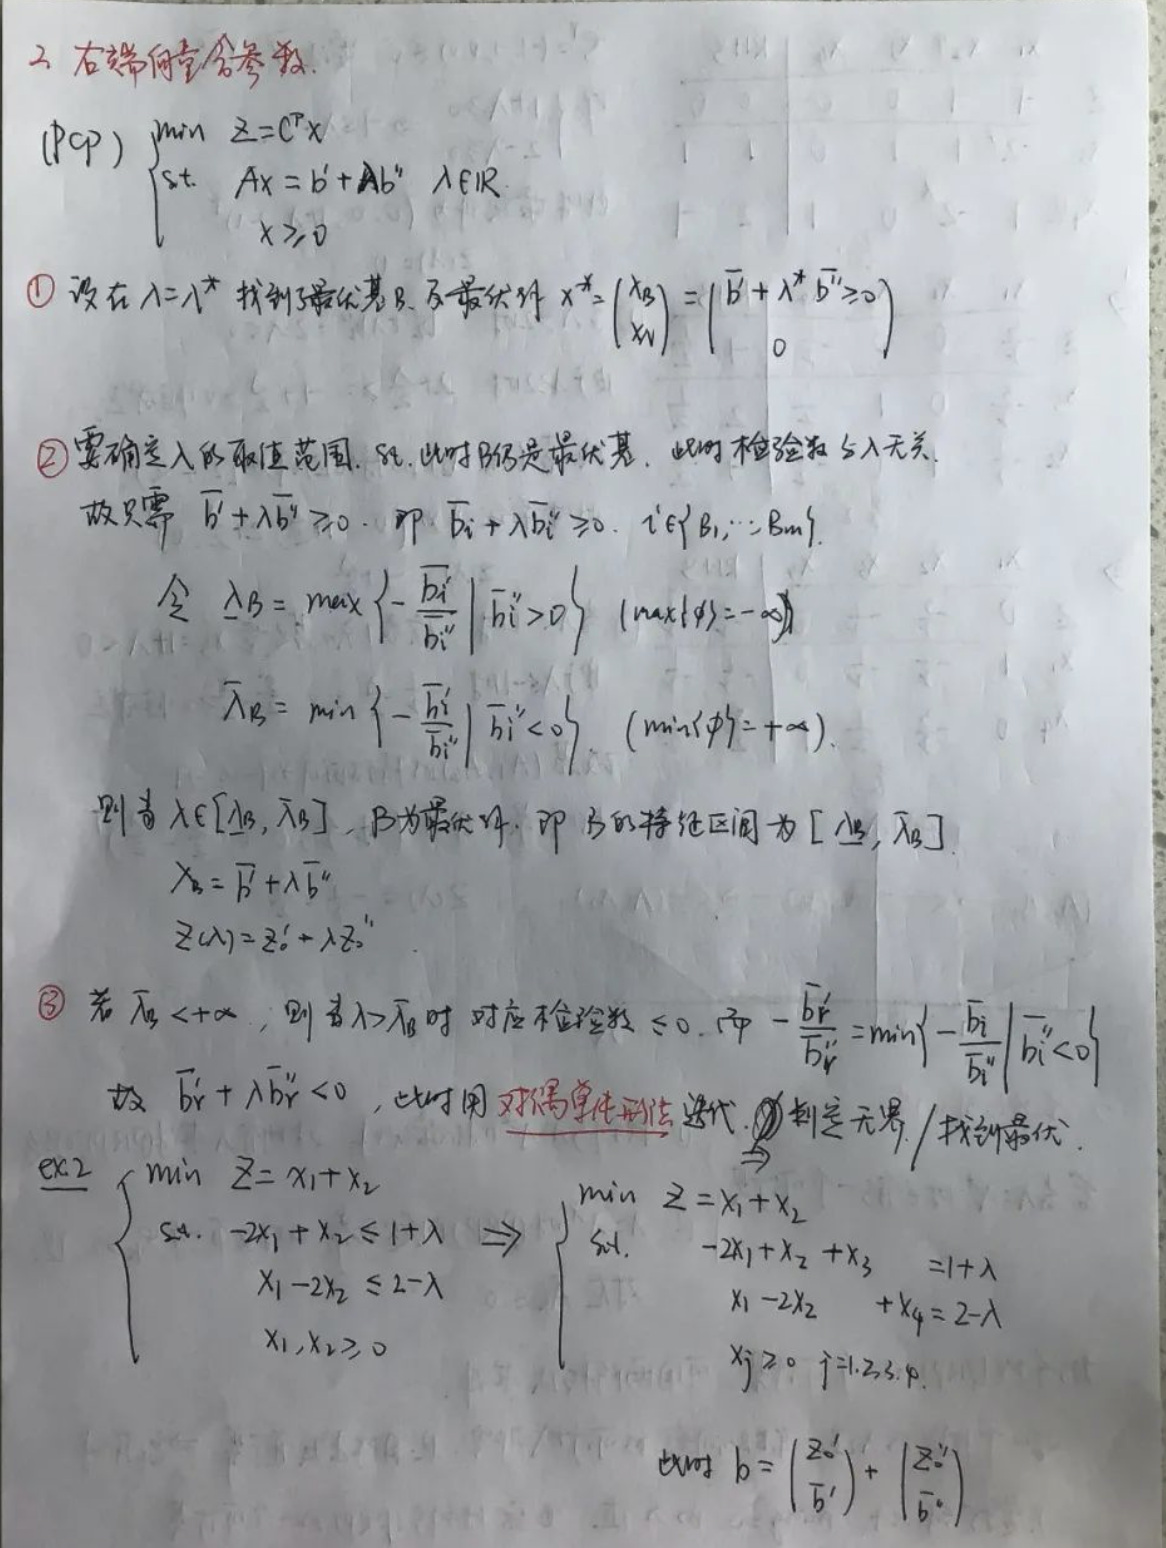 2 右端向量含参数.
(PCP) { min Z=CᵀX
s.t. Ax = b' + λb'' λ∈IR
x ≥ 0
① 设在 λ=λ* 找到了最优基B. 及最优解 x* = (x_B x_N) = (b̄' + λ* b̄'' ≥0 0)
② 要确定λ的取值范围. st. 此时B仍是最优基. 此时检验数与λ无关.
故只需 b̄' + λb̄'' ≥0. 即 b̄i + λb̄i'' ≥0. i∈{B1, … Bm}.
令 λ̲B = max { - b̄i' / b̄i'' | b̄i'' >0 } (max{φ} = -∞)
λ̄B = min { - b̄i' / b̄i'' | b̄i'' <0 }. (min{φ} = +∞).
则当 λ∈[λ̲B, λ̄B], B为最优解. 即 B的特征区间为 [λ̲B, λ̄B].
XB = b̄' + λb̄''
Z(λ) = Z0' + λZ0''.
③ 若 λ̄B < +∞, 则当λ>λ̄B时 对应检验数 ≤0. 而 - b̄r' / b̄r'' = min{ - b̄i / b̄i'' | b̄i'' <0 }
故 b̄r' + λb̄r'' <0, 此时用对偶单纯形法迭代. ⇒ 判定无界 / 找到最优.
ex2 { min Z= x1+x2
s.t. -2x1 + x2 ≤ 1+λ
x1 -2x2 ≤ 2-λ
x1, x2 ≥ 0
⇒ { min Z = x1+x2
s.t. -2x1 + x2 + x3 = 1+λ
x1 -2x2 + x4 = 2-λ
xj ≥ 0 j=1.2.3.4.
此时 b = (Z0' b̄') + (Z0'' b̄'')